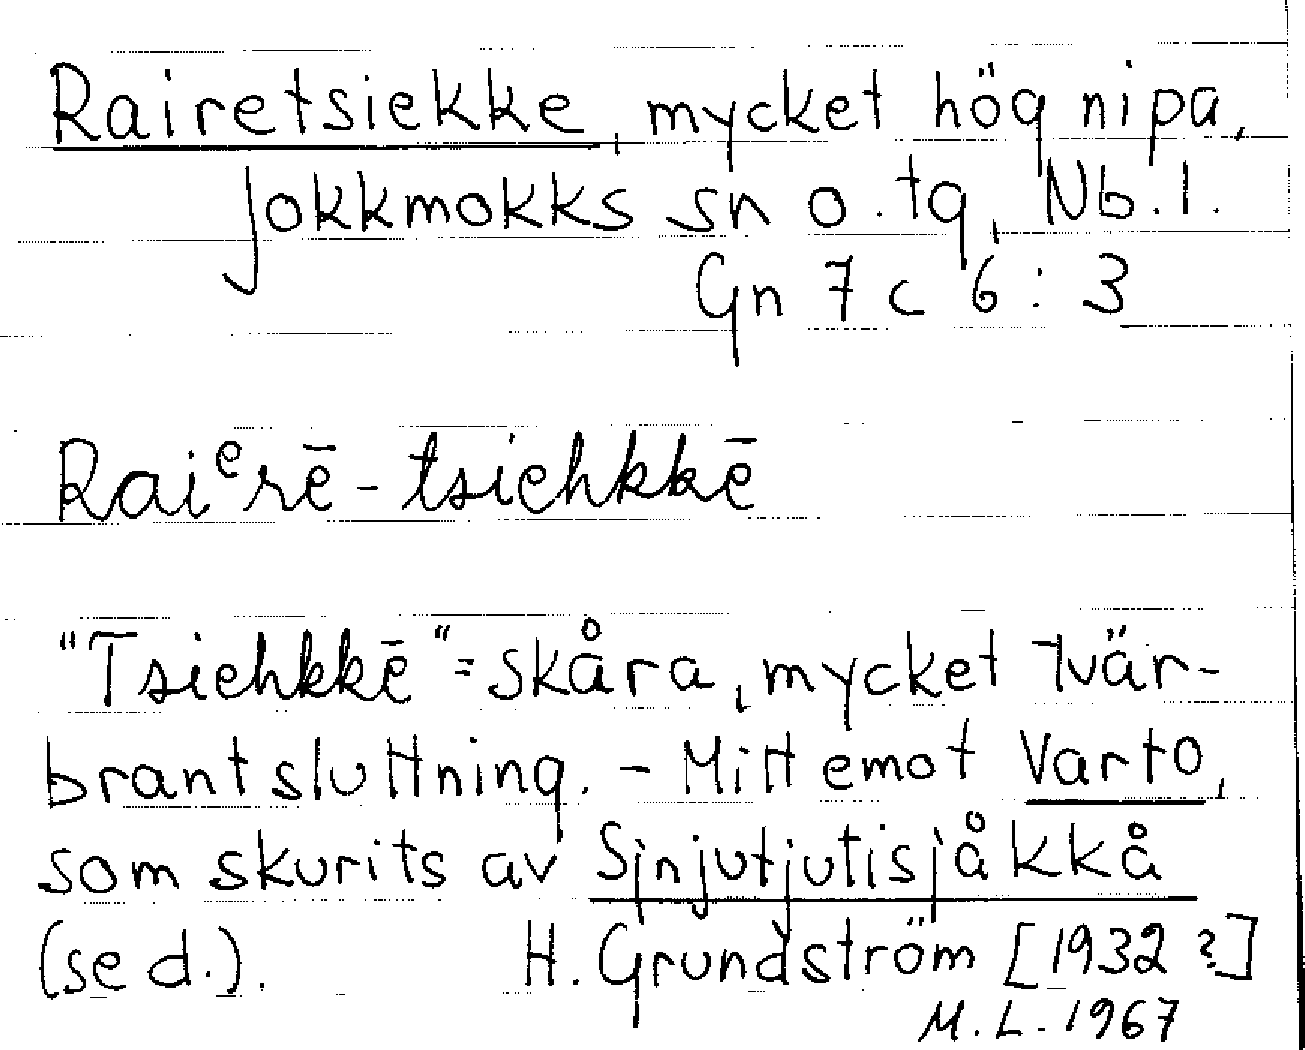 Rairetsiekke, mycket hög nipa,
Jokkmokks sn o. tg, Nb. l.
Gn 7 c 6 : 3
Raiᵉrē-tsiehkkē
"Tsiehkkē" = skåra, mycket tvär-
brant sluttning. - Mitt emot Varto,
som skurits av Sjnjutjutisjåkkå
(se d.). H. Grundström [1932 ?]
M. L. 1967